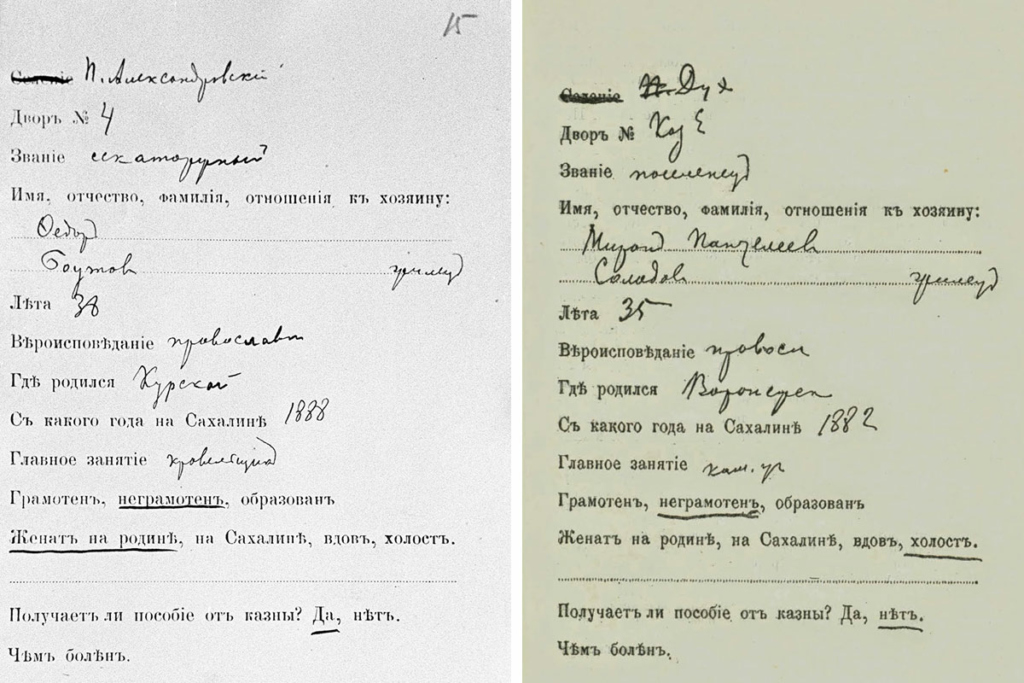 15
Селеніе П. Александровскій
Дворъ № 4
Званіе каторжный
Имя, отчество, фамилія, отношенія къ хозяину:
Ѳедор
Лѣта 38
Вѣроисповѣданіе православн
Гдѣ родился Курской
Съ какого года на Сахалинѣ 1888
Главное занятіе кровельщик
Грамотенъ, неграмотенъ, образованъ
Женатъ на родинѣ, на Сахалинѣ, вдовъ, холостъ.
Получаетъ ли пособіе отъ казны? Да, нѣтъ.
Чѣмъ болѣнъ.
Селеніе Дух
Дворъ №
Званіе поселенец
Имя, отчество, фамилія, отношенія къ хозяину:
Мирон Пантелеев
Солодов
Лѣта 35
Вѣроисповѣданіе правосл
Гдѣ родился Воронеж
Съ какого года на Сахалинѣ 1882
Главное занятіе
Грамотенъ, неграмотенъ, образованъ
Женатъ на родинѣ, на Сахалинѣ, вдовъ, холостъ.
Получаетъ ли пособіе отъ казны? Да, нѣтъ.
Чѣмъ болѣнъ.